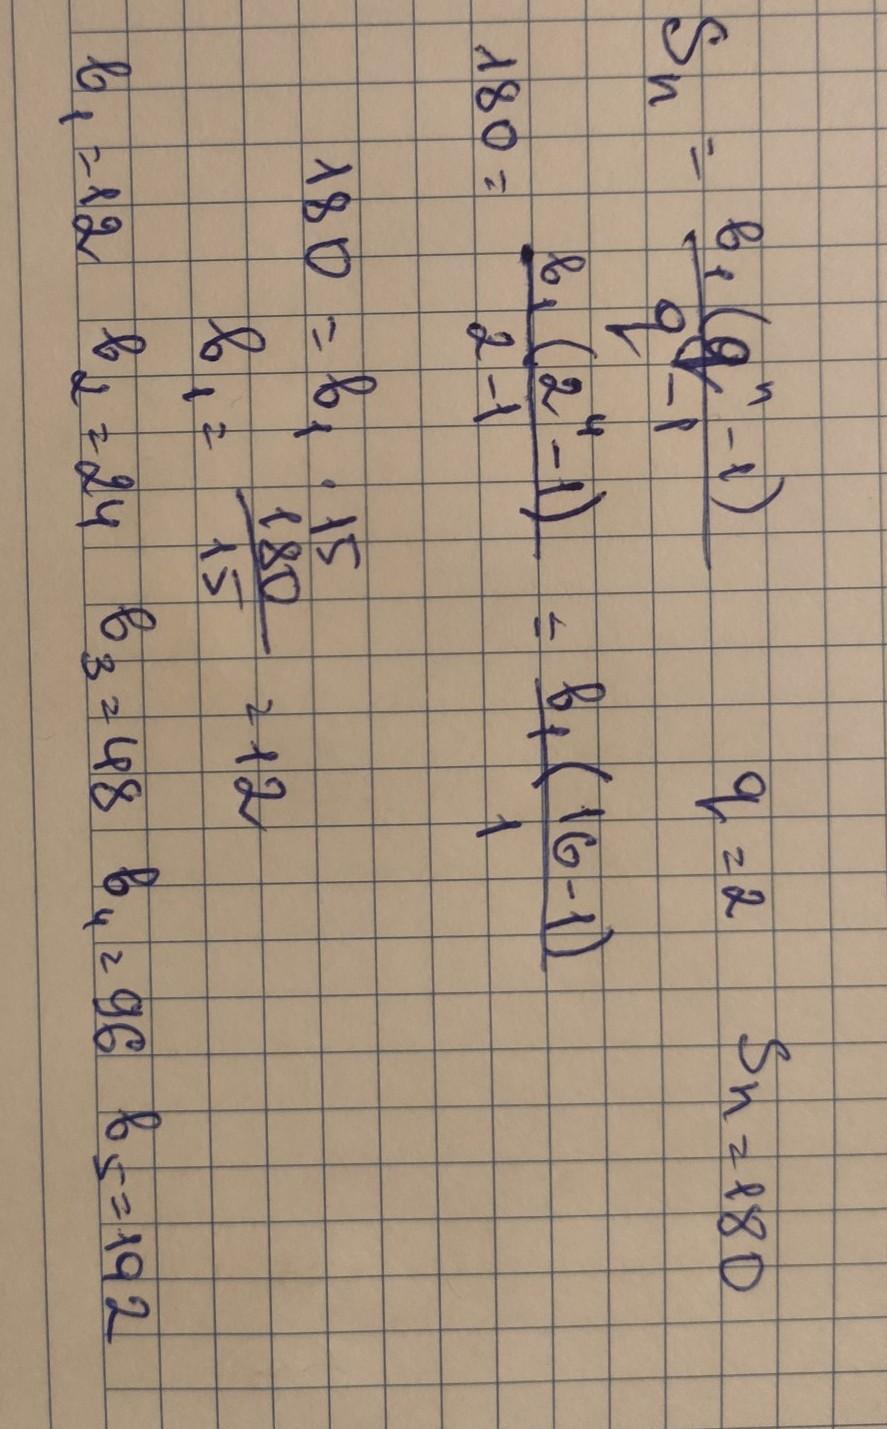 Sn = b₁(qⁿ-1)/q-1 q=2 Sn=180
180 = b₁(2⁴-1)/2-1 = b₁(16-1)/1
180 = b₁ · 15
b₁ = 180/15 = 12
b₁=12 b₂=24 b₃=48 b₄=96 b₅=192